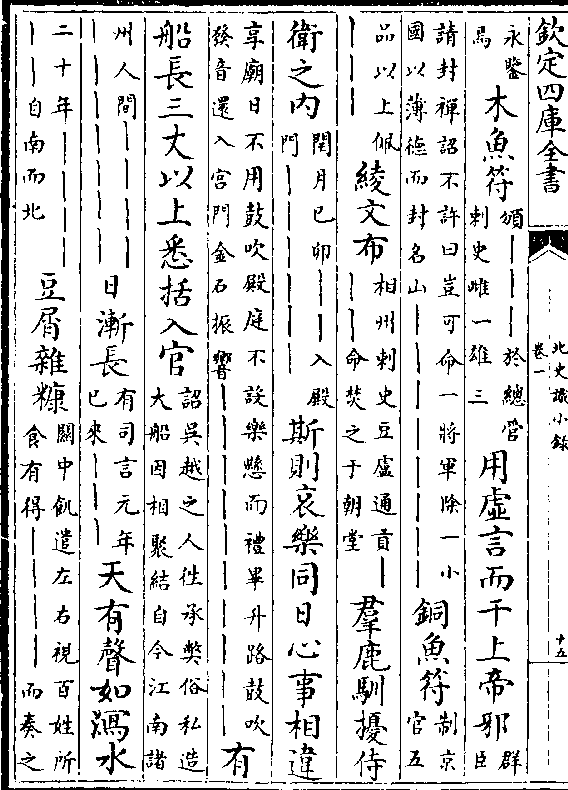 欽定四庫全書
北史識小錄
卷一
十五
永鑒
焉
木魚符
頒｜｜｜於總管
刺史雌一雄三
用虛言而干上帝邪
群
臣
請封禪詔不許曰豈可命一將軍除一小
國以薄德而封名山｜｜｜｜｜｜｜
銅魚符
制京
官五
品以上佩
｜｜｜
綾文布
相州刺史豆盧通貢｜
｜｜命焚之于朝堂
羣鹿馴擾侍
衛之內
閏月己卯｜｜｜入殿
門｜｜｜｜
斯則哀樂同日心事相違
享廟日不用鼓吹殿庭不設樂懸而禮畢升路鼓吹
發音還入宮門金石振響｜｜｜｜｜｜｜｜｜｜
有
船長三丈以上悉括入官
詔吳越之人往承弊俗私造
大船因相聚結自今江南諸
州人間｜｜｜｜
｜｜｜｜｜｜
日漸長
有司言元年
已來｜｜｜
天有聲如瀉水
二十年｜｜｜
｜｜自南而北
豆屑雜糠
關中飢遣左右視百姓所
食有得｜｜｜｜而奏之